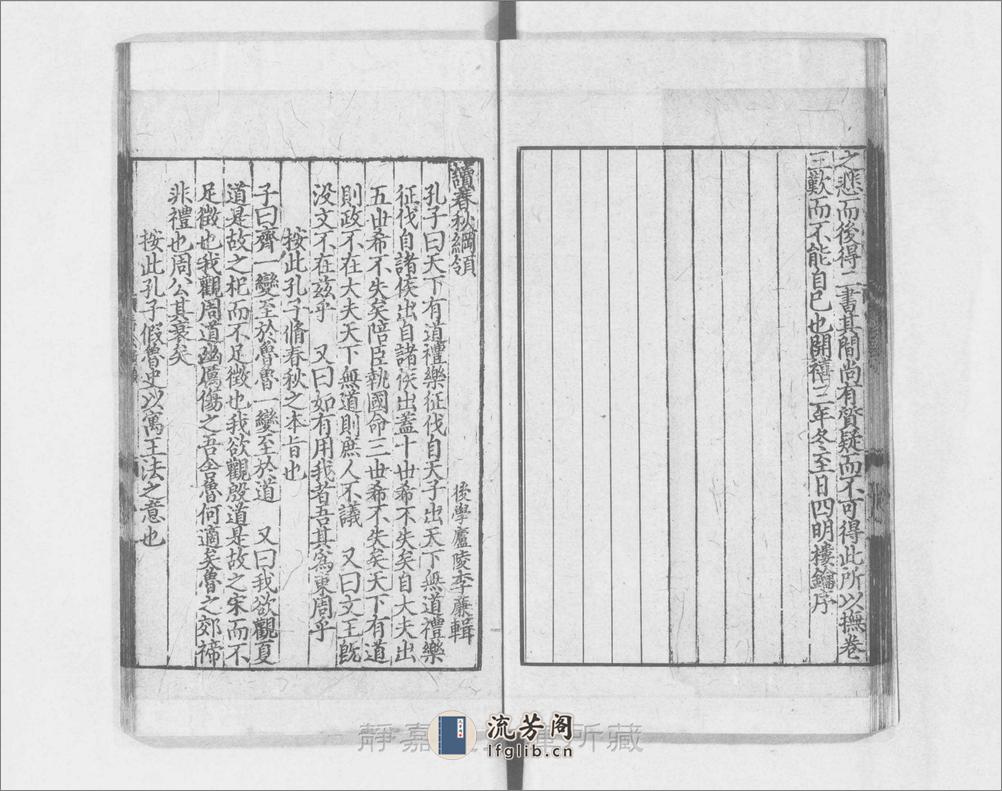 之悲而後得二書其間尚有質疑而不可得此所以撫卷
三歎而不能自已也開禧三年冬至日四明樓鑰序
讀春秋綱領
後學廬陵李廉輯
孔子曰天下有道禮樂征伐自天子出天下無道禮樂
征伐自諸侯出自諸侯出蓋十世希不失矣自大夫出
五世希不失矣陪臣執國命三世希不失矣天下有道
則政不在大夫天下無道則庶人不議 又曰文王旣
没文不在茲乎 又曰如有用我者吾其爲東周乎
按此孔子脩春秋之本旨也
子曰齊一變至於魯魯一變至於道 又曰我欲觀夏
道是故之杞而不足徵也我欲觀殷道是故之宋而不
足徵也我觀周道幽厲傷之吾舍魯何適矣魯之郊禘
非禮也周公其衰矣
按此孔子假魯史以寓王法之意也
静嘉 所藏
流芳阁
lfglib.cn